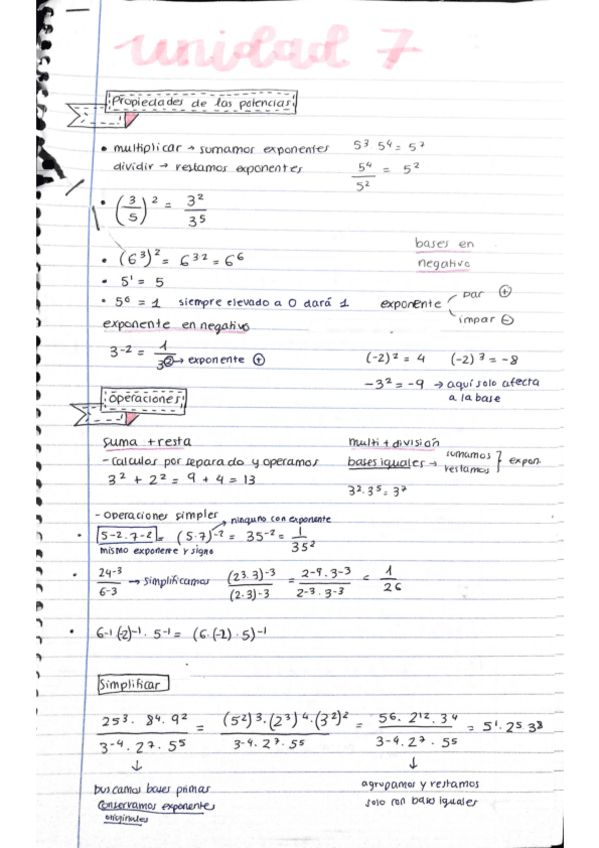 unidad 7
Propiedades de las potencias
• multiplicar → sumamos exponentes 5³ 5⁴ = 5⁷
dividir → restamos exponentes 5⁴/5² = 5²
• (3/5)² = 3²/3⁵
• (6³)² = 6³² = 6⁶
bases en
negativo
• 5¹ = 5
• 5⁰ = 1 siempre elevado a 0 dará 1
exponente par ⊕
impar ⊖
exponente en negativo
3⁻² = 1/3② → exponente ⊕
(-2)² = 4 (-2)³ = -8
-3² = -9 → aquí solo afecta
a la base
operaciones
suma + resta
- calculos por separado y operamos
3² + 2² = 9 + 4 = 13
multi + división
bases iguales → sumamos restamos } expon.
3² · 3⁵ = 3⁷
- operaciones simples
→ ninguno con exponente
• 5⁻² · 7⁻² = (5·7)⁻² = 35⁻² = 1/35²
mismo exponente y signo
• 24⁻³/6⁻³ → simplificamos (2³·3)⁻³/(2·3)⁻³ = 2⁻⁹·3⁻³/2⁻³·3⁻³ = 1/2⁶
• 6⁻¹ (-2)⁻¹ · 5⁻¹ = (6·(-2)·5)⁻¹
Simplificar
25³ · 8⁴ · 9²/3⁻⁴ · 2⁷ · 5⁵ = (5²)³ · (2³)⁴ · (3²)²/3⁻⁴ · 2⁷ · 5⁵ = 5⁶ · 2¹² · 3⁴/3⁻⁴ · 2⁷ · 5⁵ = 5¹ · 2⁵ · 3⁸
↓
buscamos bases primas
conservamos exponentes
originales
↓
agrupamos y restamos
solo con base iguales